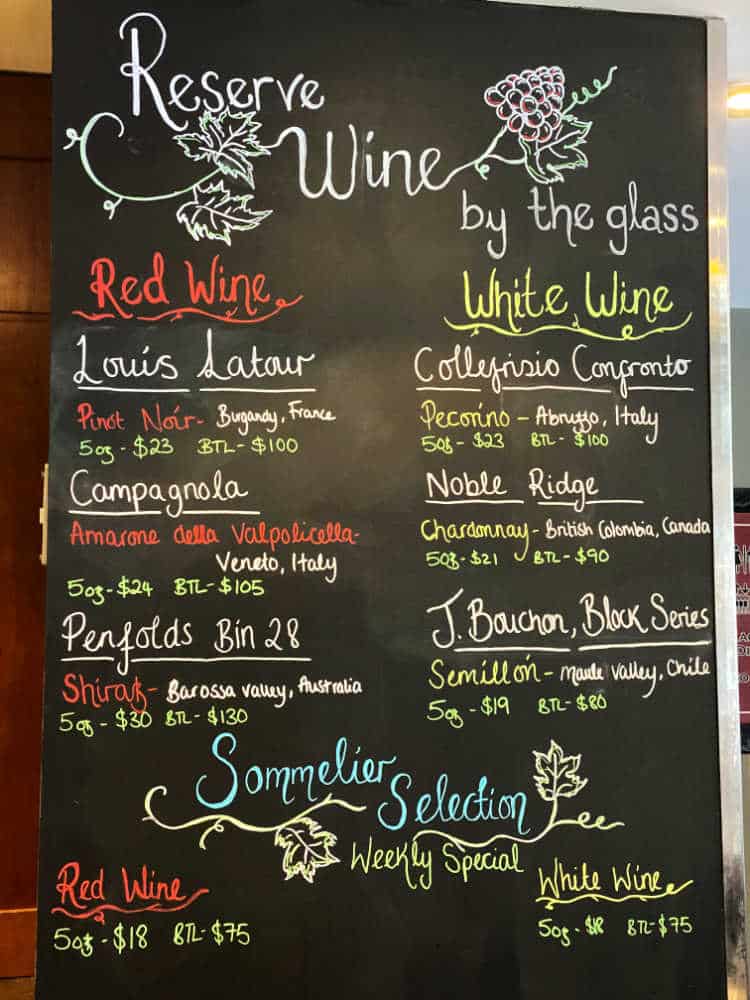 Reserve
Wine
by the glass
Red Wine
Louis Latour
Pinot Noir - Burgandy, France
5oz - $23 BTL - $100
Campagnola
Amarone della Valpolicella -
Veneto, Italy
5oz - $24 BTL - $105
Penfolds Bin 28
Shiraz - Barossa valley, Australia
5oz - $30 BTL - $130
White Wine
Collefrisio Confronto
Pecorino - Abruzzo, Italy
5oz - $23 BTL - $100
Noble Ridge
Chardonnay - British Colombia, Canada
5oz - $21 BTL - $90
J. Bouchon, Block Series
Semillon - Maule Valley, Chile
5oz - $19 BTL - $80
Sommelier
Selection
Weekly Special
Red Wine
5oz - $18 BTL - $75
White Wine
5oz - $18 BTL - $75